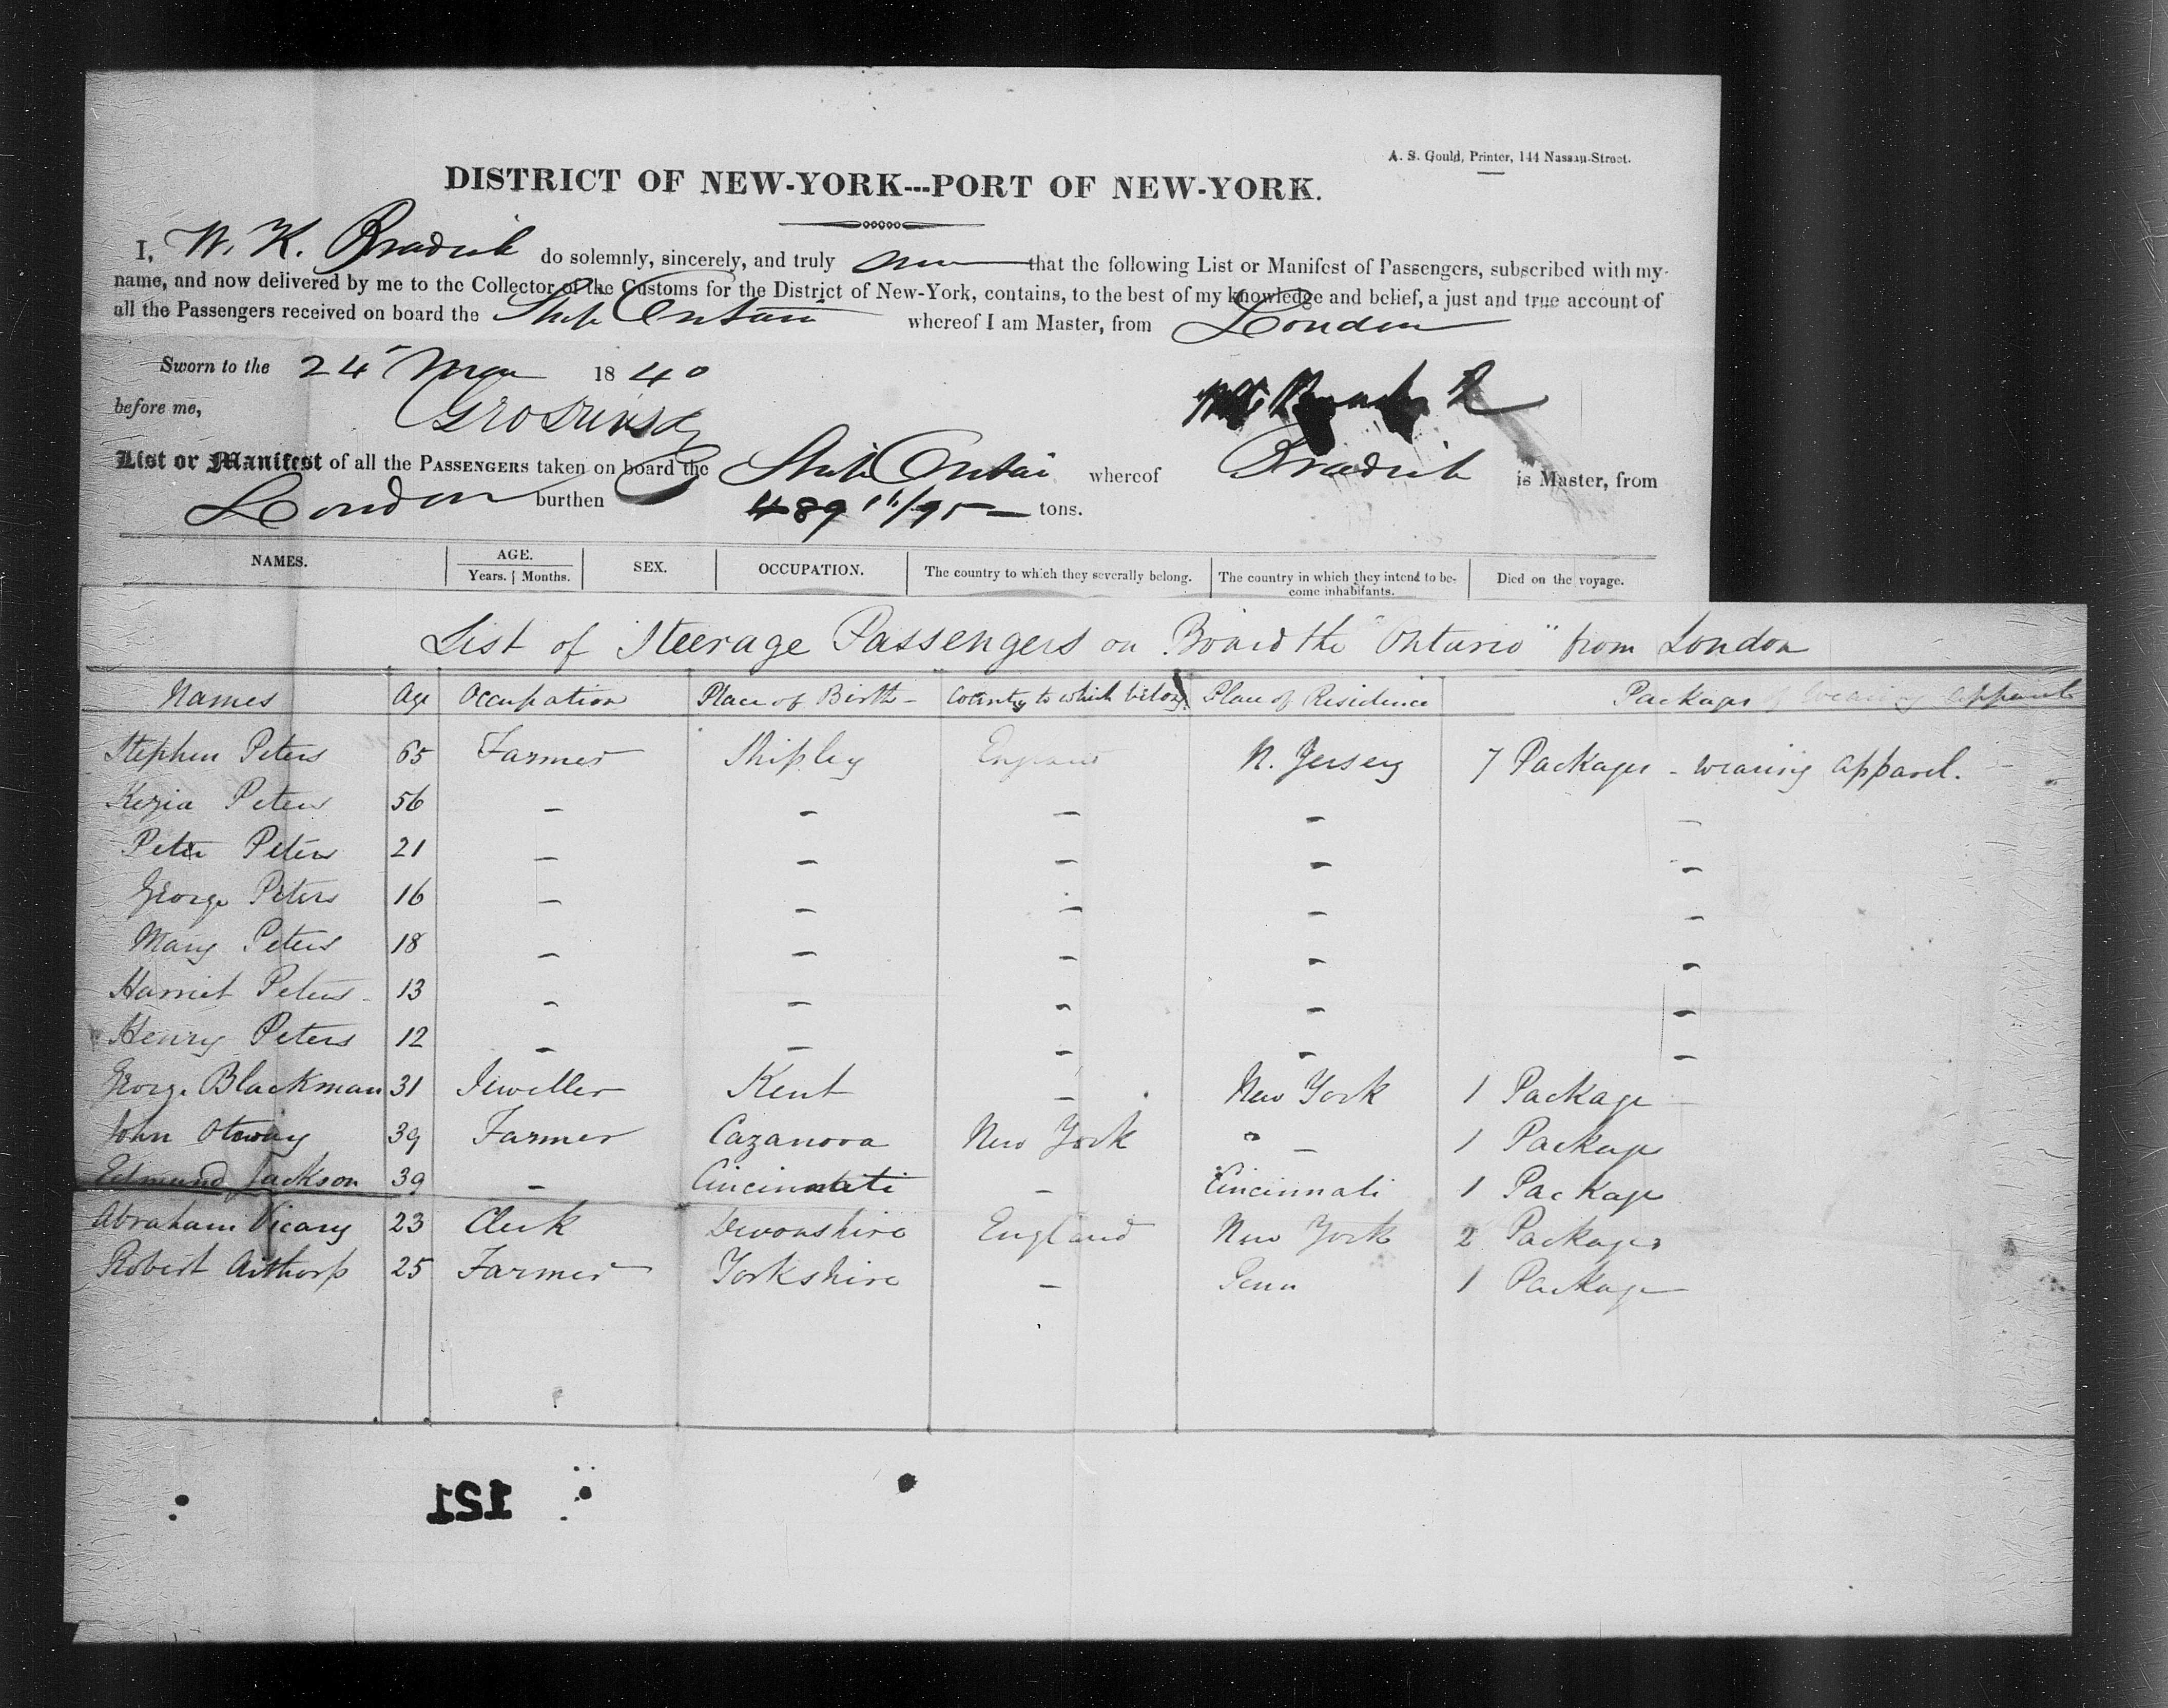 A. S. Gould, Printer, 144 Nassau-Street.
DISTRICT OF NEW-YORK---PORT OF NEW-YORK.
I, W. K. Bradish do solemnly, sincerely, and truly that the following List or Manifest of Passengers, subscribed with my
name, and now delivered by me to the Collector of the Customs for the District of New-York, contains, to the best of my knowledge and belief, a just and true account of
all the Passengers received on board the Ship Ontario whereof I am Master, from London
Sworn to the 24 1840
before me,
List or Manifest of all the PASSENGERS taken on board the Ship Ontario whereof Bradish is Master, from
London burthen 489 11/95 tons.
NAMES. AGE. Years. Months. SEX. OCCUPATION. The country to which they severally belong. The country in which they intend to become inhabitants. Died on the voyage.
List of Steerage Passengers on Board the "Ontario" from London
Names Age Occupation Place of Birth - Country to which belong. Place of Residence Packages of wearing apparel
Stephen Peters 65 Farmer Shipley England N. Jersey 7 Packages - wearing apparel.
Kezia Peters 56 - - - - -
Peter Peters 21 - - - - -
George Peters 16 - - - - -
Mary Peters 18 - - - - -
Harriet Peters 13 - - - - -
Henry Peters 12 - - - - -
George Blackman 31 Jeweller Kent - New York 1 Package
John Otoway 39 Farmer Cazanova New York " - 1 Package
Edmund Jackson 39 - Cincinnati - Cincinnati 1 Package
Abraham Vicary 23 Clerk Devonshire England New York 2 Packages
Robert 25 Farmer Yorkshire - Penn 1 Package
121